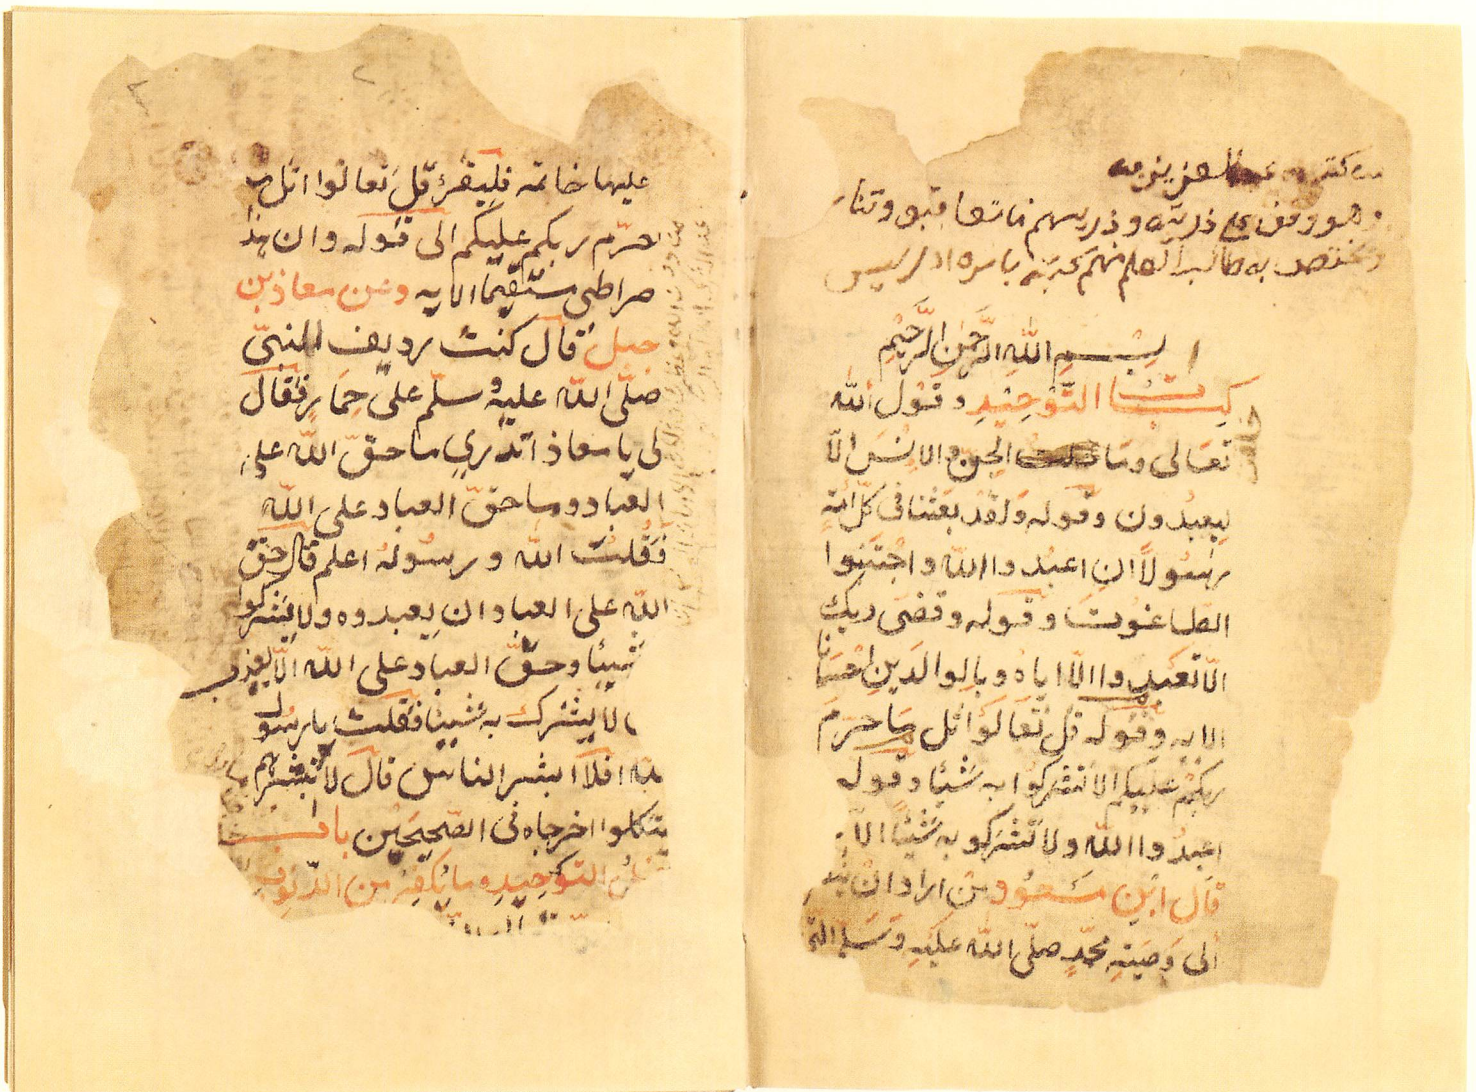 وهو وقف على ذريته وذريتهم ما تعاقبو وتنا
ويختص به طالب العلم منهم
بِسْمِ اللهِ الرَّحْمٰنِ الرَّحِيْمِ
كِتَابُ التَّوْحِيْدِ وقَوْل الله
تعَالى ومَا خلقت الجن والانس الّا
ليعبدُون وقوله وَلقَد بعَثنا في كلّ امّةٍ
رسُولاً انِ اعبُدوا الله واجْتَنبُوا
الطاغُوت وقوله وقضى ربك
الّا تعبُدوا الّا اياهُ وبالوالدَينِ احْسَانا
الايه وقوله قل تَعَالوا اتل مَا حرّم
ربكمْ عليكم الا تشركوُا به شَيْئا وقوله
اعبدُوا اللّه ولا تُشْركو به شَيْئا الآ
قال ابن مسعُود من اراد انْ ينْظر
الى وَصيَةِ محمّدٍ صلّى الله عليَهِ وَسَلم التى
عليها خاتمه فليقرء قلْ تعالوا اتل ما
حرّم ربكم عليكم الى قوله وان هذا
صراطى مستقيما الايه وعن معاذ بن
جبل قال كنتُ رديف النبىّ
صلّى الله عليه وسلّم على حِمَار فقال
لى يا معاذ اتدري ما حقّ الله على
العباد وما حقّ العباد على الله
فقُلتُ الله ورسُولهُ اعلم قال حق
الله على العباد ان يعبدوه ولا يشركوا
شيئا وحقُّ العباد على الله الّا يعذب
من لا يشرك به شيئا فقلت يا رسُول
الله افلا ابشر الناس قال لا تبشرهم
فيتكلوا اخرجاه فى الصّحيحَين باب
فضل التوحيدِ وما يُكفِر من الذّنوب